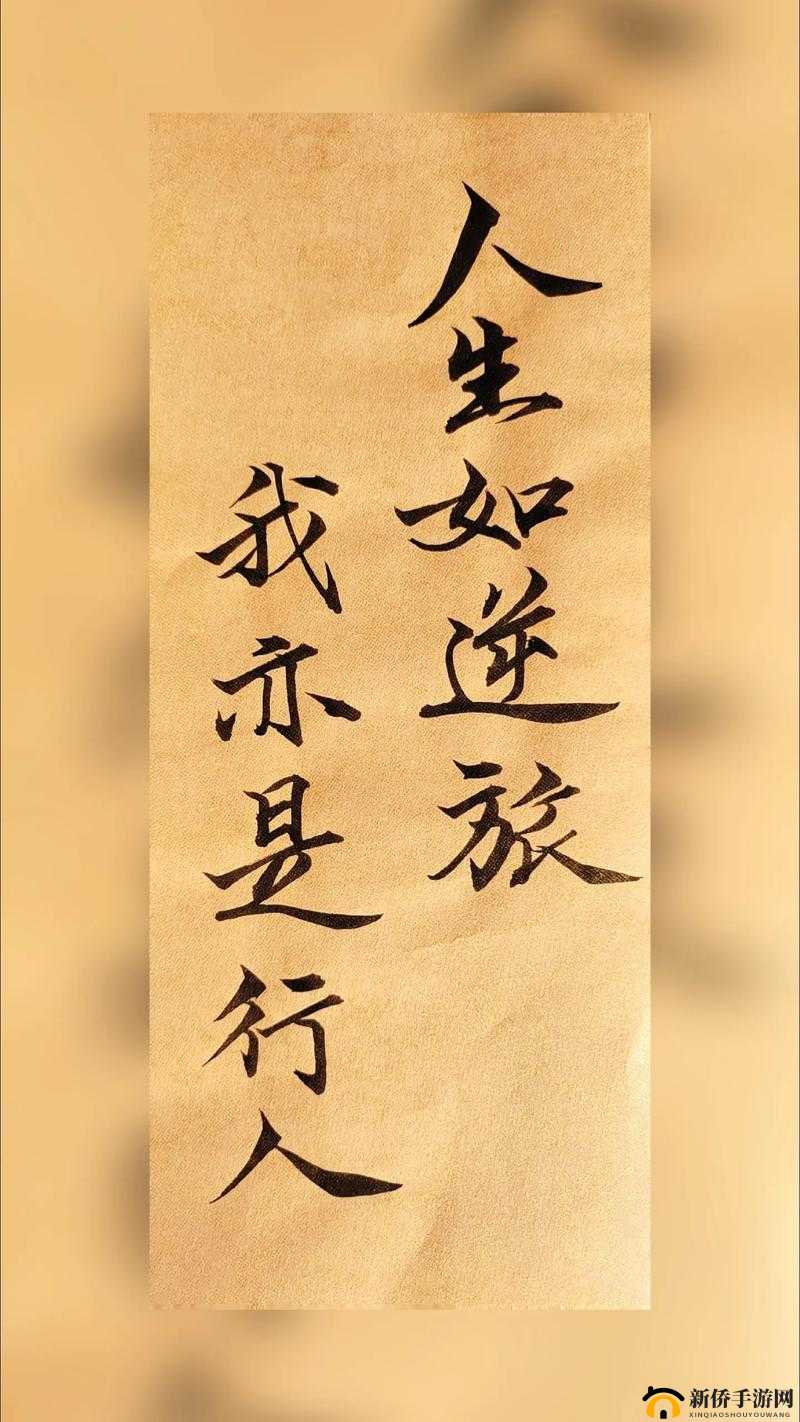 人生如逆旅
我亦是行人
新侨手游网
XINQIAOSHOUYOUWANG